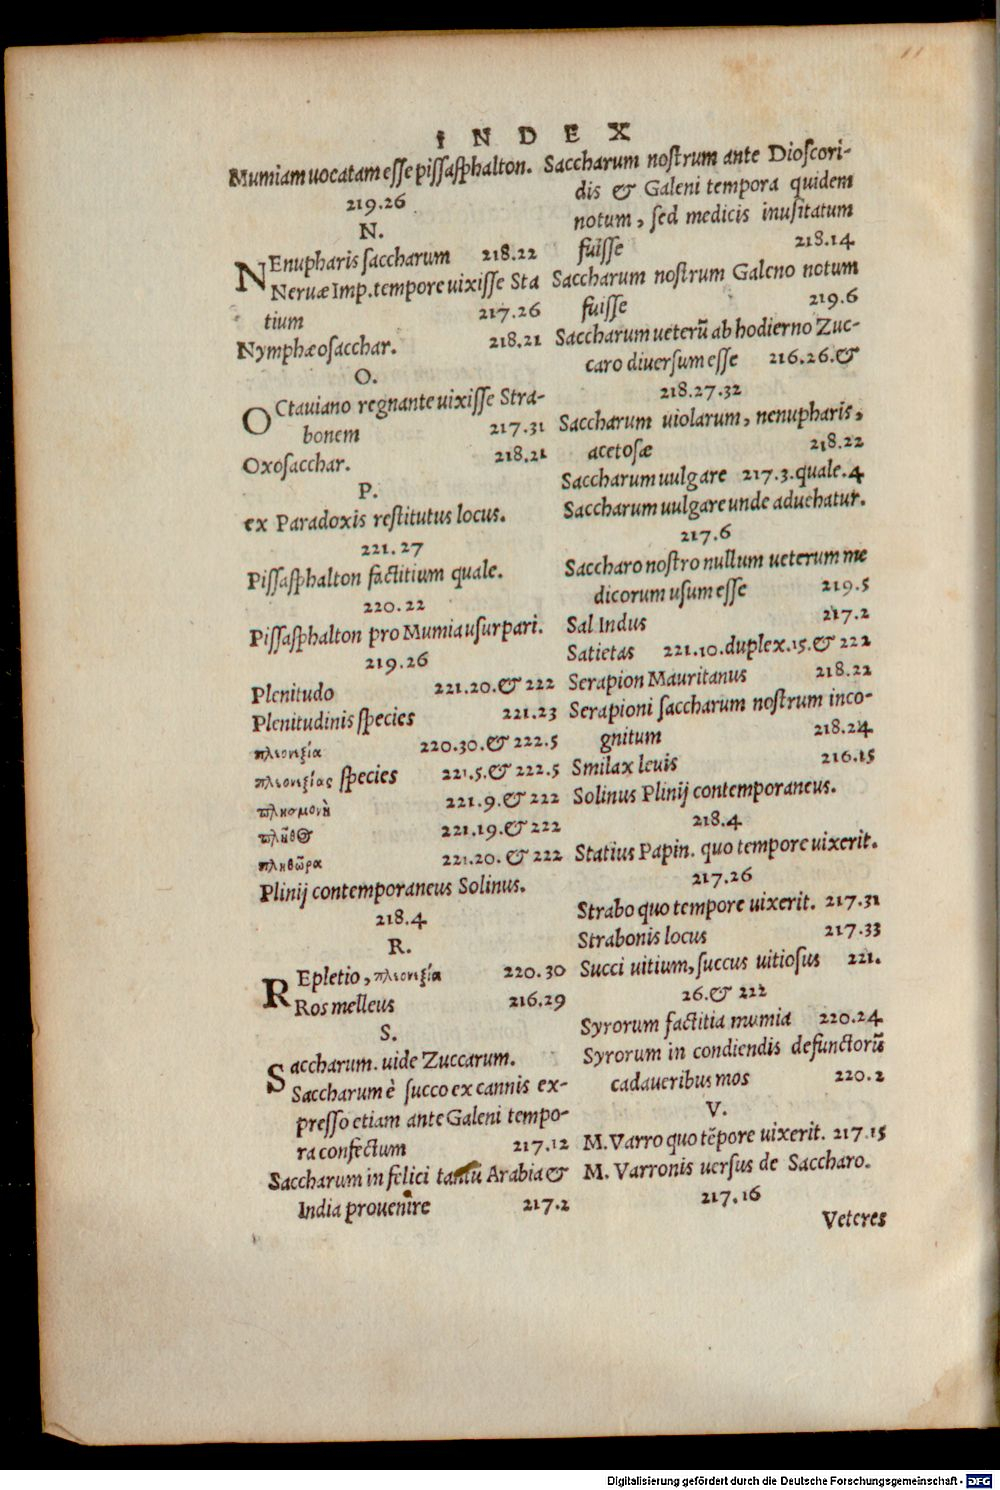 INDEX
Mumiam uocatam esse pissasphalton.
219.26
N.
NEnupharis saccharum 218.22
Neruæ Imp. tempore uixisse Sta
tium 217.26
Nymphæosacchar. 218.21
O.
OCtauiano regnante uixisse Stra-
bonem 217.31
Oxosacchar. 218.21
P.
ex Paradoxis restitutus locus.
221.27
Pissasphalton factitium quale.
220.22
Pissasphalton pro Mumia usurpari.
219.26
Plenitudo 221.20.& 222
Plenitudinis species 221.23
πλεονεξία 220.30.& 222.5
πλεονεξίας species 221.5.& 222.5
πλησμονὴ 221.9.& 222
πλῆθος 221.19.& 222
πληθῶρα 221.20.& 222
Plinij contemporaneus Solinus.
218.4
R.
REpletio, πλεονεξία 220.30
Ros melleus 216.29
S.
Saccharum. uide Zuccarum.
Saccharum è succo ex cannis ex-
presso etiam ante Galeni tempo-
ra confectum 217.12
Saccharum in felici tantū Arabia &
India prouenire 217.2
Saccharum nostrum ante Dioscori-
dis & Galeni tempora quidem
notum, sed medicis inusitatum
fuisse 218.14
Saccharum nostrum Galeno notum
fuisse 219.6
Saccharum ueterū ab hodierno Zuc-
caro diuersum esse 216.26.&
218.27.32
Saccharum uiolarum, nenupharis,
acetosæ 218.22
Saccharum uulgare 217.3.quale.4
Saccharum uulgare unde aduehatur.
217.6
Saccharo nostro nullum ueterum me
dicorum usum esse 219.5
Sal Indus 217.2
Satietas 221.10.duplex.15.& 222
Serapion Mauritanus 218.22
Serapioni saccharum nostrum inco-
gnitum 218.24
Smilax leuis 216.15
Solinus Plinij contemporaneus.
218.4
Statius Papin. quo tempore uixerit.
217.26
Strabo quo tempore uixerit. 217.31
Strabonis locus 217.33
Succi uitium, succus uitiosus 221.
26.& 222
Syrorum factitia mumia 220.24
Syrorum in condiendis defunctorū
cadaueribus mos 220.2
V.
M. Varro quo tēpore uixerit. 217.15
M. Varronis uersus de Saccharo.
217.16
Veteres
Digitalisierung gefördert durch die Deutsche Forschungsgemeinschaft - DFG